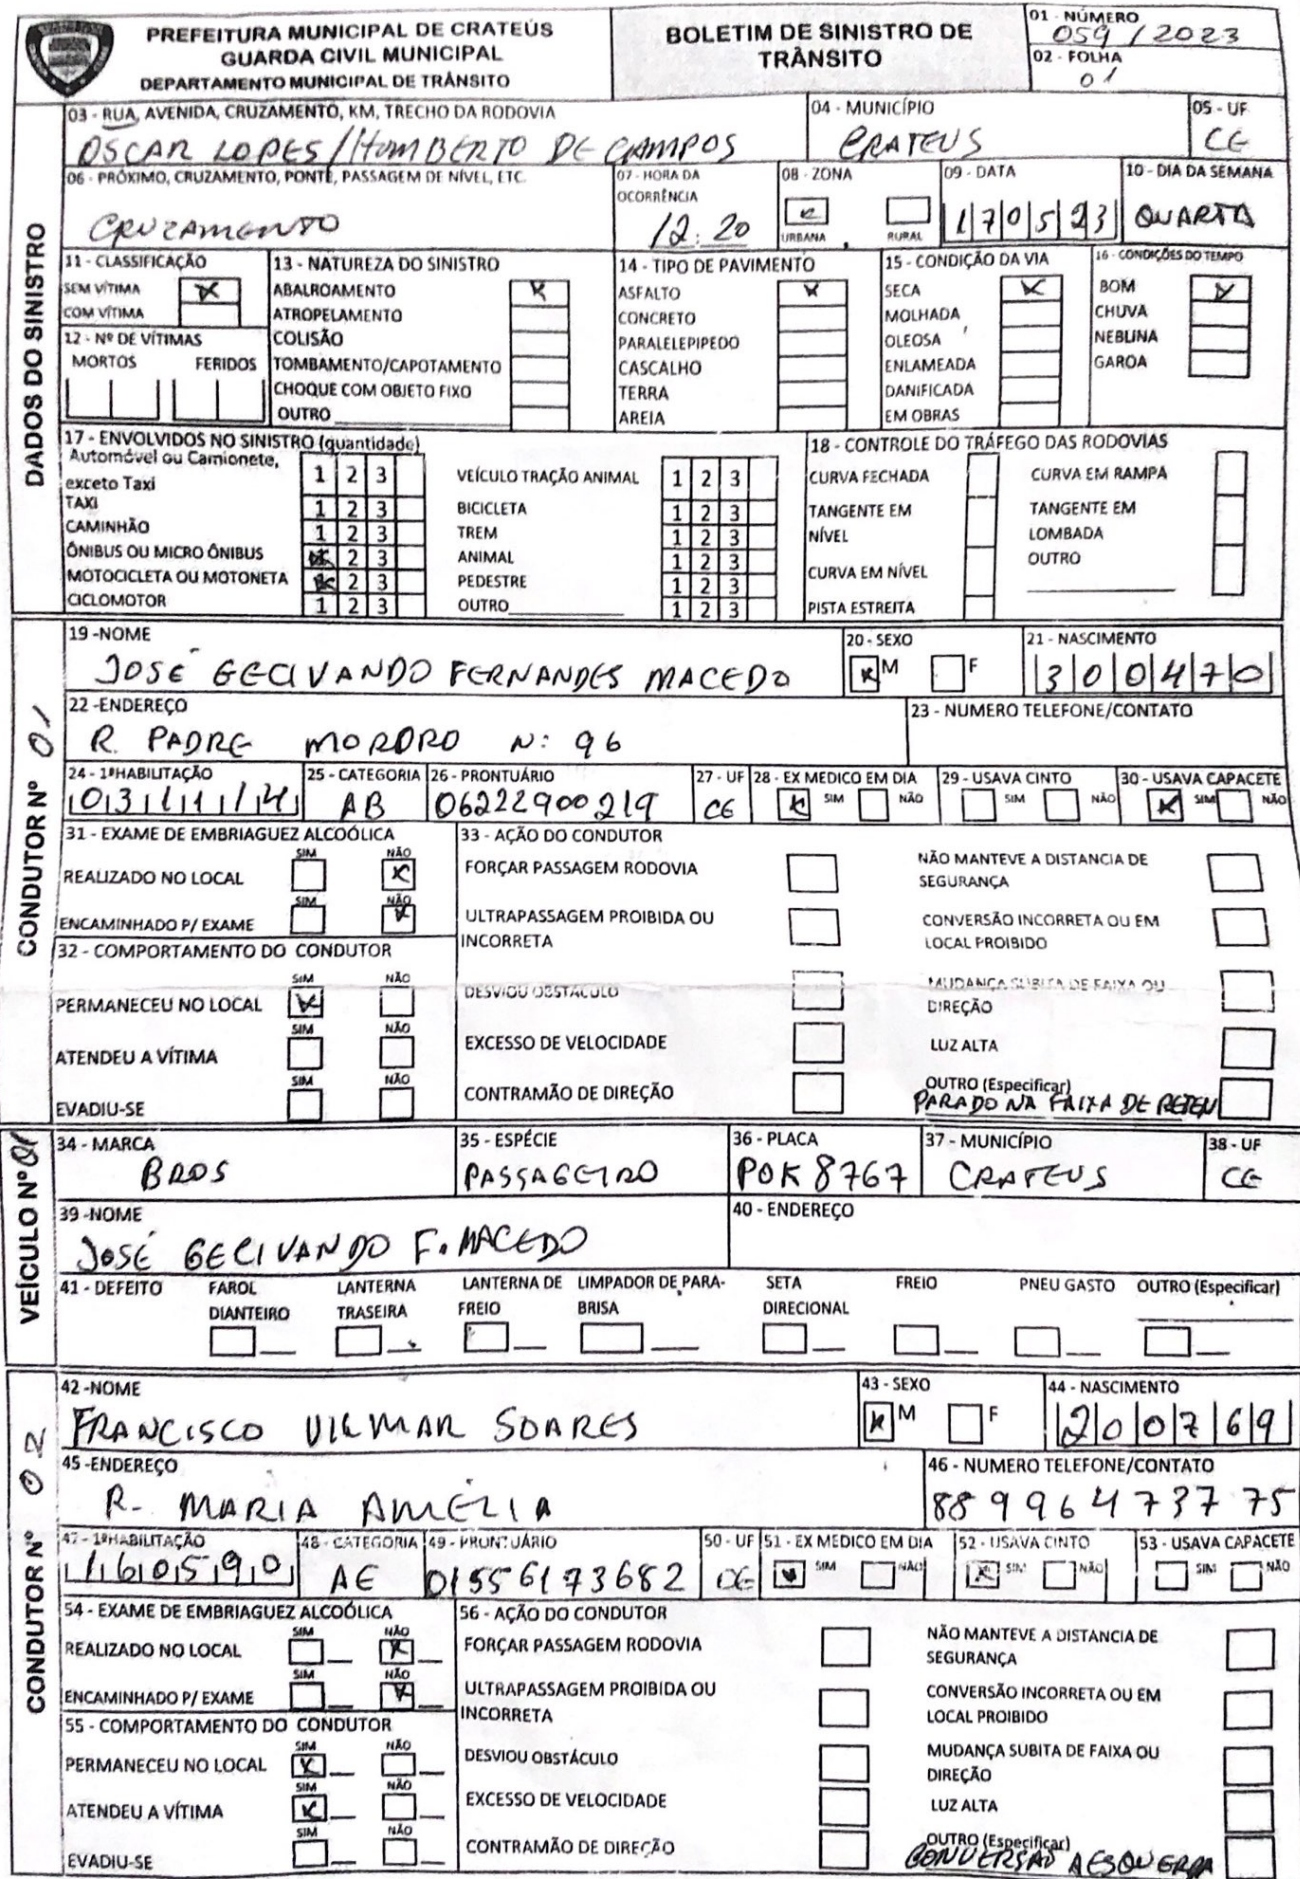 PREFEITURA MUNICIPAL DE CRATEÚS
GUARDA CIVIL MUNICIPAL
DEPARTAMENTO MUNICIPAL DE TRÂNSITO
BOLETIM DE SINISTRO DE
TRÂNSITO
01 - NÚMERO
059 / 2023
02 - FOLHA
01
DADOS DO SINISTRO
03 - RUA, AVENIDA, CRUZAMENTO, KM, TRECHO DA RODOVIA
OSCAR LOPES / HUMBERTO DE CAMPOS
04 - MUNICÍPIO
CRATEUS
05 - UF
CE
06 - PRÓXIMO, CRUZAMENTO, PONTE, PASSAGEM DE NÍVEL, ETC.
CRUZAMENTO
07 - HORA DA
OCORRÊNCIA
12:20
08 - ZONA
URBANA
RURAL
09 - DATA
170523
10 - DIA DA SEMANA
QUARTA
11 - CLASSIFICAÇÃO
SEM VÍTIMA
COM VÍTIMA
12 - Nº DE VÍTIMAS
MORTOS FERIDOS
13 - NATUREZA DO SINISTRO
ABALROAMENTO
ATROPELAMENTO
COLISÃO
TOMBAMENTO/CAPOTAMENTO
CHOQUE COM OBJETO FIXO
OUTRO
14 - TIPO DE PAVIMENTO
ASFALTO
CONCRETO
PARALELEPIPEDO
CASCALHO
TERRA
AREIA
15 - CONDIÇÃO DA VIA
SECA
MOLHADA
OLEOSA
ENLAMEADA
DANIFICADA
EM OBRAS
16 - CONDIÇÕES DO TEMPO
BOM
CHUVA
NEBLINA
GAROA
17 - ENVOLVIDOS NO SINISTRO (quantidade)
Automóvel ou Camionete,
exceto Taxi 1 2 3
TAXI 1 2 3
CAMINHÃO 1 2 3
ÔNIBUS OU MICRO ÔNIBUS 2 3
MOTOCICLETA OU MOTONETA 2 3
CICLOMOTOR 1 2 3
VEÍCULO TRAÇÃO ANIMAL 1 2 3
BICICLETA 1 2 3
TREM 1 2 3
ANIMAL 1 2 3
PEDESTRE 1 2 3
OUTRO 1 2 3
18 - CONTROLE DO TRÁFEGO DAS RODOVIAS
CURVA FECHADA
TANGENTE EM
NÍVEL
CURVA EM NÍVEL
PISTA ESTREITA
CURVA EM RAMPA
TANGENTE EM
LOMBADA
OUTRO
CONDUTOR Nº 01
19 -NOME
JOSÉ GECIVANDO FERNANDES MACEDO
20 - SEXO
M F
21 - NASCIMENTO
300470
22 -ENDEREÇO
R. PADRE MORORO N: 96
23 - NUMERO TELEFONE/CONTATO
24 - 1ªHABILITAÇÃO
031114
25 - CATEGORIA
AB
26 - PRONTUÁRIO
06222900219
27 - UF
CE
28 - EX MEDICO EM DIA
SIM NÃO
29 - USAVA CINTO
SIM NÃO
30 - USAVA CAPACETE
SIM NÃO
31 - EXAME DE EMBRIAGUEZ ALCOÓLICA
SIM NÃO
REALIZADO NO LOCAL
SIM NÃO
ENCAMINHADO P/ EXAME
32 - COMPORTAMENTO DO CONDUTOR
SIM NÃO
PERMANECEU NO LOCAL
SIM NÃO
ATENDEU A VÍTIMA
SIM NÃO
EVADIU-SE
33 - AÇÃO DO CONDUTOR
FORÇAR PASSAGEM RODOVIA
ULTRAPASSAGEM PROIBIDA OU
INCORRETA
DESVIOU OBSTÁCULO
EXCESSO DE VELOCIDADE
CONTRAMÃO DE DIREÇÃO
NÃO MANTEVE A DISTANCIA DE
SEGURANÇA
CONVERSÃO INCORRETA OU EM
LOCAL PROIBIDO
MUDANÇA SUBITA DE FAIXA OU
DIREÇÃO
LUZ ALTA
OUTRO (Especificar)
PARADO NA FAIXA DE RETEN
VEÍCULO Nº 01
34 - MARCA
BROS
35 - ESPÉCIE
PASSAGEIRO
36 - PLACA
POK 8767
37 - MUNICÍPIO
CRATEUS
38 - UF
CE
39 -NOME
JOSÉ GECIVANDO F. MACEDO
40 - ENDEREÇO
41 - DEFEITO
FAROL
DIANTEIRO
LANTERNA
TRASEIRA
LANTERNA DE
FREIO
LIMPADOR DE PARA-
BRISA
SETA
DIRECIONAL
FREIO
PNEU GASTO
OUTRO (Especificar)
CONDUTOR Nº 02
42 -NOME
FRANCISCO VILMAR SOARES
43 - SEXO
M F
44 - NASCIMENTO
200769
45 -ENDEREÇO
R. MARIA AMÉLIA
46 - NUMERO TELEFONE/CONTATO
88 9 9964 737 75
47 - 1ªHABILITAÇÃO
160590
48 - CATEGORIA
AE
49 - PRONTUÁRIO
01556173682
50 - UF
CE
51 - EX MEDICO EM DIA
SIM NÃO
52 - USAVA CINTO
SIM NÃO
53 - USAVA CAPACETE
SIM NÃO
54 - EXAME DE EMBRIAGUEZ ALCOÓLICA
SIM NÃO
REALIZADO NO LOCAL
SIM NÃO
ENCAMINHADO P/ EXAME
55 - COMPORTAMENTO DO CONDUTOR
SIM NÃO
PERMANECEU NO LOCAL
SIM NÃO
ATENDEU A VÍTIMA
SIM NÃO
EVADIU-SE
56 - AÇÃO DO CONDUTOR
FORÇAR PASSAGEM RODOVIA
ULTRAPASSAGEM PROIBIDA OU
INCORRETA
DESVIOU OBSTÁCULO
EXCESSO DE VELOCIDADE
CONTRAMÃO DE DIREÇÃO
NÃO MANTEVE A DISTANCIA DE
SEGURANÇA
CONVERSÃO INCORRETA OU EM
LOCAL PROIBIDO
MUDANÇA SUBITA DE FAIXA OU
DIREÇÃO
LUZ ALTA
OUTRO (Especificar)
CONVERSÃO A ESQUERDA